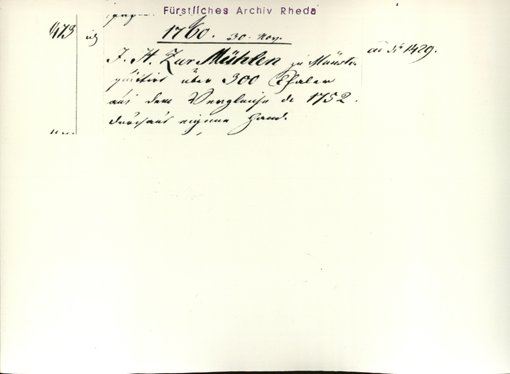 Fürstliches Archiv Rheda
473
1760. 30. Nov.
J. H. Zur Mühlen zu Münster
quittirt über 300 Thaler
aus dem Vergleiche de 1752.
durchaus eigene Hand.
1429.